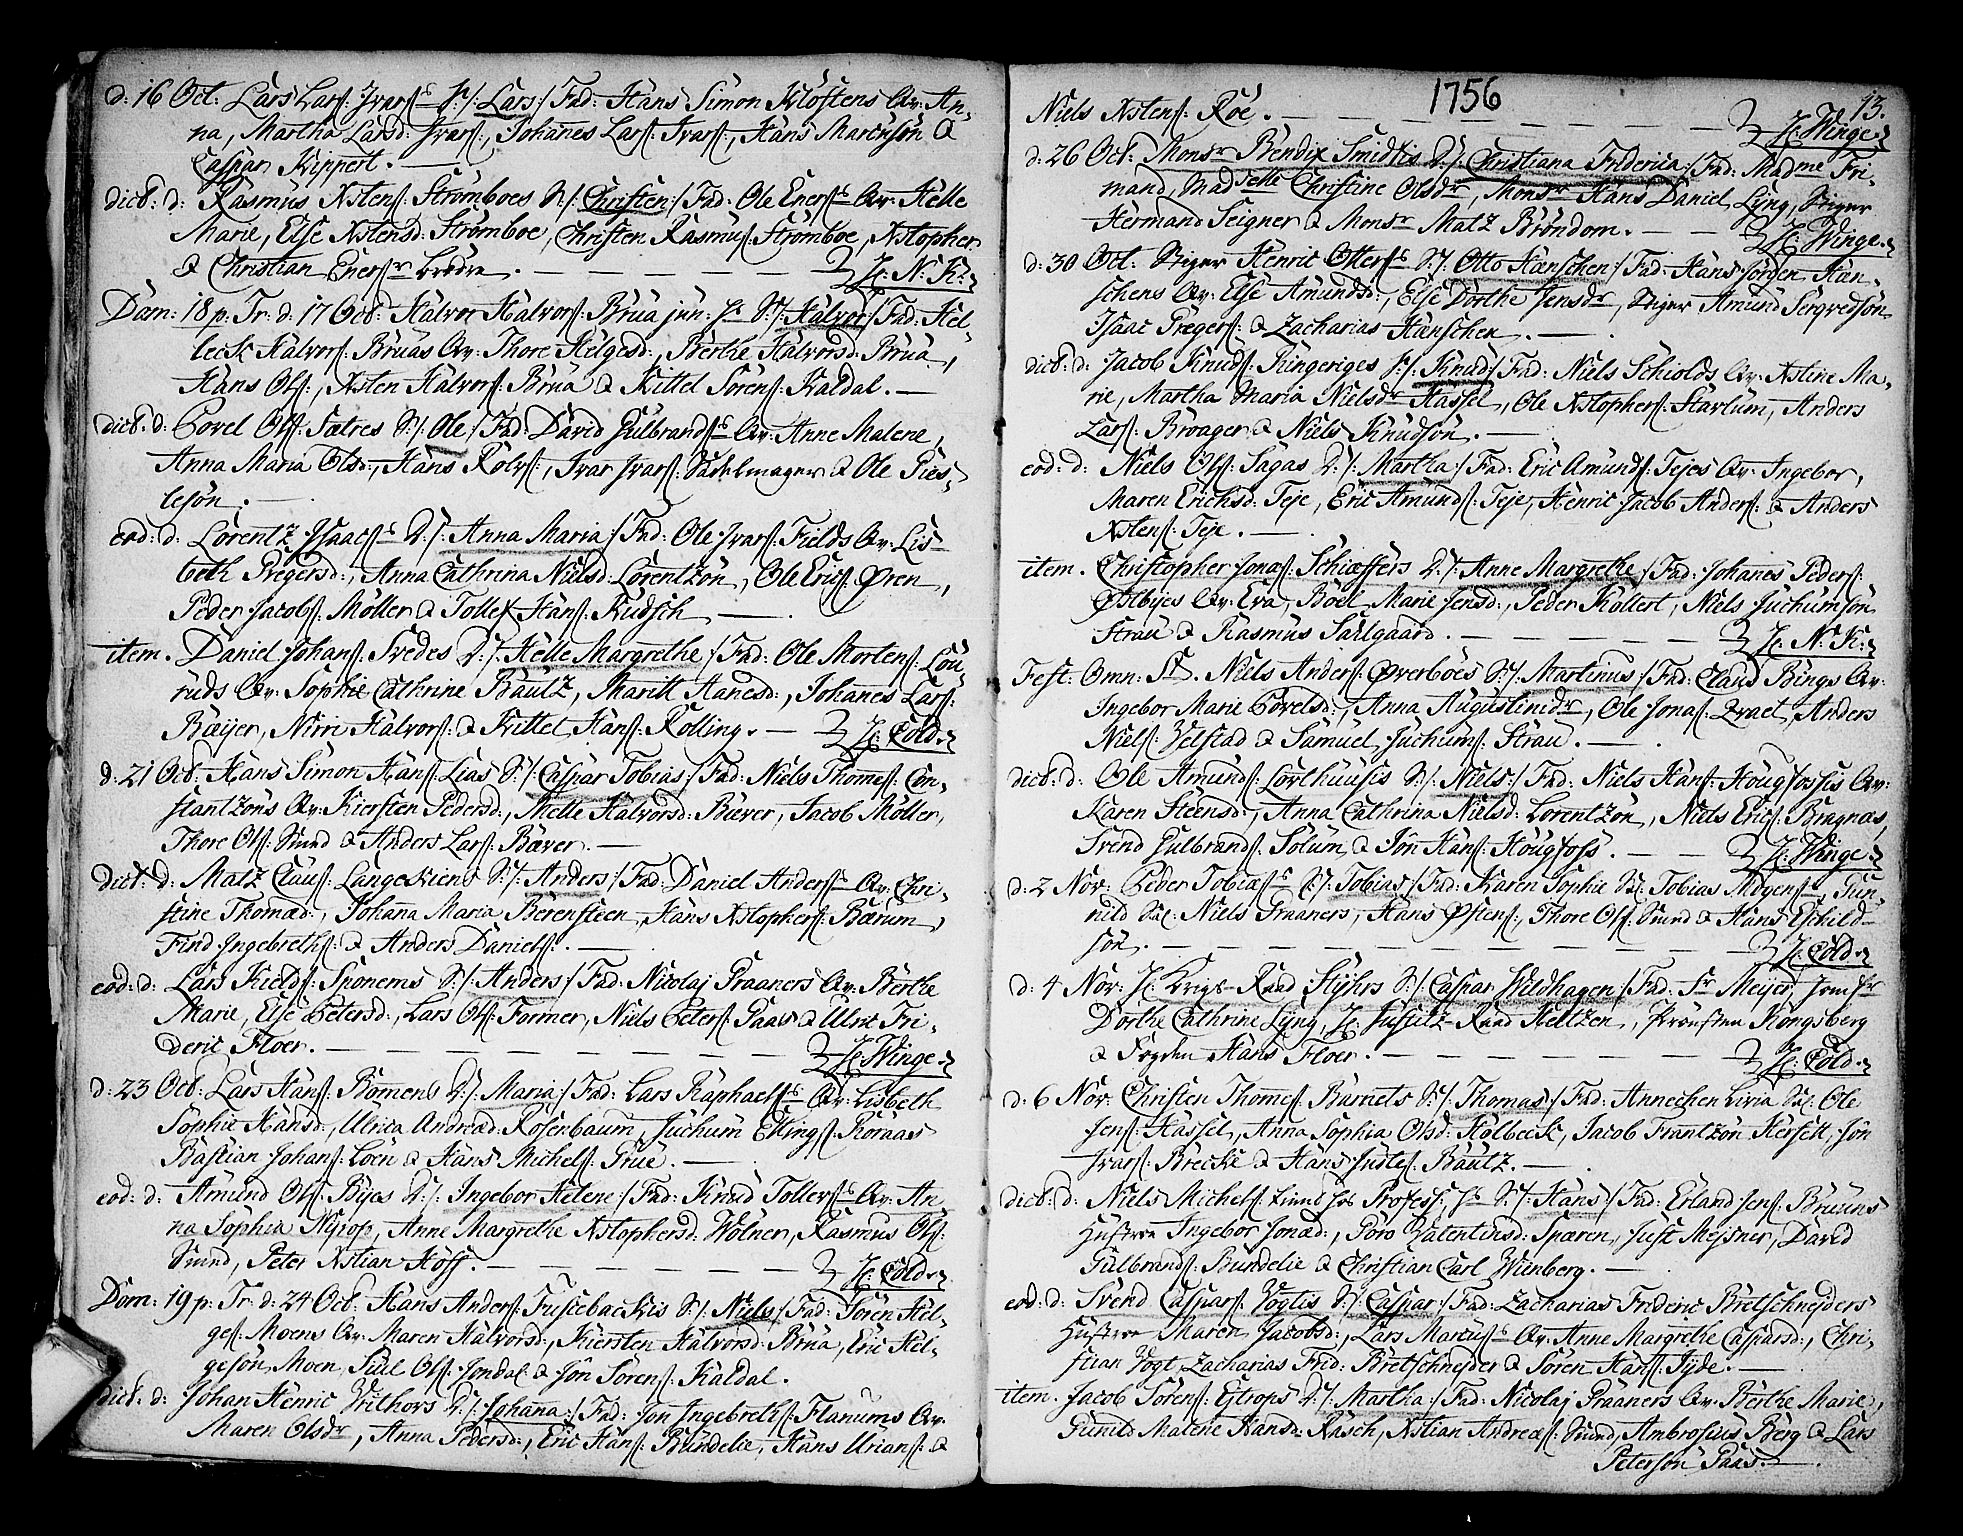 d: 16 Oct: Lars Lars: Ivars S:/: Lars :/ Fad: Hans Simon Kloftens Qv: An-
na, Martha Larsd: Ivars:, Johanes Lars: Ivars:, Hans Marcusøn &
Caspar Kippert. —
dict: d: Rasmus Xstens: Strømboes S:/: Christen :/ Fad: Ole Eners: Qv: Helle
Marie, Else Xstensd: Strømboe, Christen Rasmus: Strømboe, Xstopher
& Christian Eners: Brødre. — H: N: K:
Dom: 18 p: Tr: d: 17 Oct: Halvor Halvors: Brua jun: S:/: Halvor :/ Fad: Hel-
leck Halvors: Bruas Qv: Thore Helgesd:, Berthe Halvorsd: Brua,
Hans Ols:, Xsten Halvors: Brua & Kittel Sørens: Kaldal. —
dict: d: Povel Ols: Sætres S:/: Ole :/ Fad: David Gulbrands: Qv: Anne Malene,
Anna Maria Olsd:, Hans Rolvs:, Ivar Ivars: Sadelmager & Ole Gies-
lesøn. —
eod: d: Lorentz Isaacs: D:/: Anna Maria :/ Fad: Ole Ivars: Fields Qv: Lis-
beth Gregersd:, Anna Cathrina Nielsd: Lorentzøn, Ole Erics: Øren,
Peder Jacobs: Møller & Tollef Hans: Kudsch —
item. Daniel Johans: Svedes D:/: Helle Margrethe :/ Fad: Ole Mortens: Lou-
ruds Qv: Sophie Cathrine Bautz, Maritt Aanesd:, Johanes Lars:
Bæijer, Nirri Halvors: & Kittel Hans: Kolling. — H: Cold
d: 21 Oct: Hans Simon Hans: Lias S:/: Caspar Tobias :/ Fad: Niels Thomes: Con-
stantzøns Qv: Kiersten Pedersd:, Melle Halvorsd: Bæver, Jacob Møller,
Thore Ols: Sund & Anders Lars: Bæver. —
dict: d: Matz Claus: Langeskiens S:/: Anders :/ Fad: Daniel Anders: Qv: Chri-
stine Thomæd:, Johana Maria Berensteen, Hans Xstophers: Bærum,
Find Ingebreths: & Anders Daniels:. —
eod: d: Lars Kields: Sponems S:/: Anders :/ Fad: Nicolaj Graaners Qv: Berthe
Marie, Else Petersd:, Lars Ols: Former, Niels Peters: Paas & Ulric Fri-
deric Floer. — H: Winge
d: 23 Oct: Lars Hans: Bømens D:/: Maria :/ Fad: Lars Raphaels: Qv: Lisbeth
Sophie Hansd:, Ulrica Andreæd: Rosenbaum, Juchum Ellings: Koraas
Bastian Johans: Loen & Hans Michels: Grue. —
eod: d: Amund Ols: Byes D:/: Ingebor Helene :/ Fad: Knud Tollers: Qv: An-
na Sophia Nyrop, Anne Margrethe Xstophersd: Wølner, Rasmus Ols:
Sund, Peter Xstian Hoff. — H: Cold
Dom: 19 p: Tr: d: 24 Oct: Hans Anders: Fuscebackis S:/: Niels :/ Fad: Søren Hel-
ges: Moens Qv: Maren Halvorsd:, Kiersten Halvorsd: Brua, Eric Hel-
gesøn Moen, Juul Ols: Jondal & Jon Sørens: Kaldal.
dict: d: Johan Henric Vrilhors D:/: Johana :/ Fad: Jon Ingebreths: Flanums Qv:
Maren Olsdr, Anna Pedersd:, Eric Hans: Bundelie, Hans Urians: &
1756
13.
Niels Xstens: Roe. — H: Winge
d: 26 Oct: Monsr Bendix Smidtis D:/: Christiana Friderica :/ Fad: Madme Fri-
mand, Madselle Christine Olsdr, Monsr Hans Daniel Lyng, Stiger
Hermand Seigner & Monsr Matz Brøndom. — H: Winge
d: 30 Oct: Stiger Henric Otters: S:/: Otto Hænschen :/ Fad: Hans Jørgen Hæn-
schens Qv: Else Amundsd:, Else Dorthe Jensdr, Stiger Amund Sergvedsøn
Isaac Gregers: & Zacharias Hænschen. —
dict: d: Jacob Knuds: Ringeriges S:/: Knud :/ Fad: Niels Schiolds Qv: Xstine Ma-
rie, Martha Maria Nielsdr Hassel, Ole Xstophers: Harlum, Anders
Lars: Broager & Niels Knudsøn. —
eod: d: Niels Ols: Sagas D:/: Martha :/ Fad: Eric Amunds: Tejes Qv: Ingebor,
Maren Erichsd: Teje, Eric Amunds: Teje, Henric Jacob Anders: & Anders
Xstens: Teje. —
item. Christopher Jonas: Schiæffers D:/: Anne Margrethe :/ Fad: Johanes Peders:
Østbyes Qv: Eva, Boel Marie Jensd:, Peder Kollert, Niels Juchumsøn
Strau & Rasmus Saxlgaard. — H: N: K:
Fest: Omn: St. Niels Anders: Øverboes S:/: Martinus :/ Fad: Claus Bings Qv:
Ingebor Marie Povelsd:, Anna Augustinidr, Ole Jonas: Qvaet, Anders
Niels: Velstad & Samuel Juchums: Strau. —
dict: d: Ole Amunds: Corthuusis S:/: Niels :/ Fad: Niels Hans: Hougfossis Qv:
Karen Steensd:, Anna Cathrina Nielsd: Lorentzøn, Niels Erics: Bragnæs,
Svend Gulbrands: Solum & Jon Hans: Hougfoss. — H: Winge
d: 2 Nov: Peder Tobiæs: S:/: Tobias :/ Fad: Karen Sophie Sal: Tobias Mogens:, Gun-
nild Sal: Niels Graaners, Hans Østens:, Thore Ols: Sund & Hans Eschild-
søn. — H: Cold
d: 4 Nov: H: Krigs-Raad Stÿhrs S:/: Caspar Wildhagen :/ Fad: Fr Meijer, Jomfr
Dorthe Cathrine Lyng, H: Justitz-Raad Heltzen, Provsten Kongsberg
& Fogden Hans Floer. — H: Cold
d: 6 Nov: Christen Thomes: Burnets S:/: Thomas :/ Fad: Annechen Liria Sal: Ole
Jens: Hassel, Anna Sophia Olsd: Holbeck, Jacob Frantzøn Hersett, Jon
Ivars: Brecke & Hans Justes: Bautz. —
dict: d: Niels Michels: S:/: Hans :/ Fad: Erland Jens: Bruuns
Hustroe Ingebor Jonæd:, Poro Valentinsd: Spæren, Just Meisner, David
Gulbrands: Bundelie & Christian Carl Winberg. —
eod: d: Svend Caspars: Vogtis S:/: Caspar :/ Fad: Zacharias Frideric Bretschneiders
Hustroe Maren Jacobsd:, Lars Marcus: Qv: Anne Margrethe Caspersd:, Chri-
stian Vogt, Zacharias Frid: Bretschneider & Søren Hans: Gyde. —
item. Jacob Sørens: Ejtrops D:/: Martha :/ Fad: Nicolaj Graaners Qv: Berthe Marie,
Gunild Malene Hansd: Rasch, Xstian Andreæs: Sund, Ambrosius Berg & Lars
Petersøn Paas. —